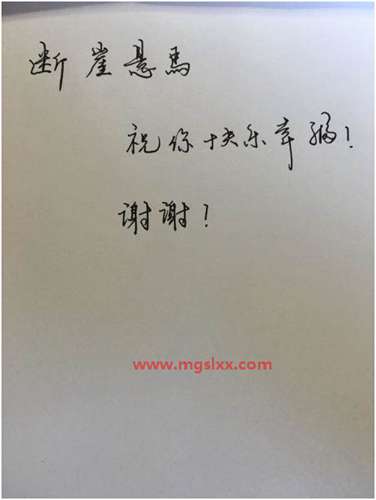 断崖悬马
祝你快乐幸福!
谢谢!
www.mgslxx.com